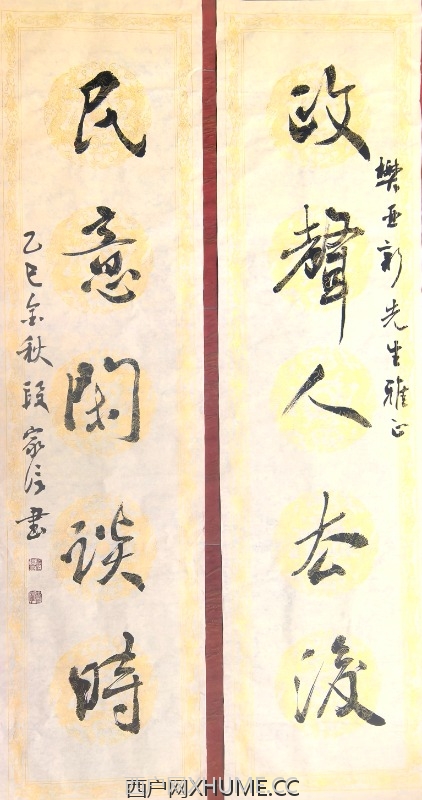 樊亚新先生雅正
政聲人去後
民意閑談時
乙巳金秋段家信書
西户网XHUME.CC